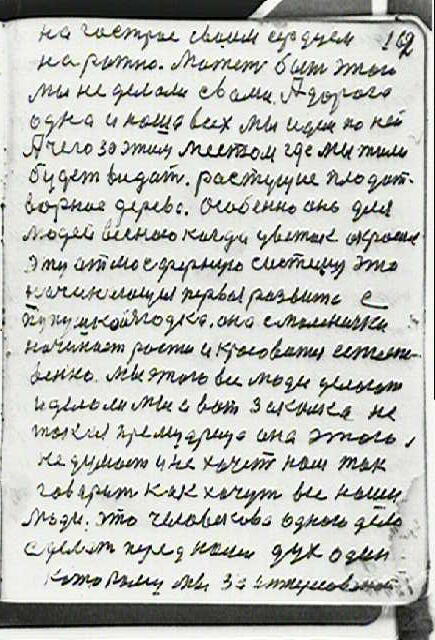 на гострое своим сердцем 162
на ротно. Может быть этого
мы не делали с вами. А дорога
одна и наша всех мы идем по ней
А чего за этим местом где мы жили
будет видать. растущие плодот-
ворное дерево. Особенно оно для
людей весною когда цветок окрошил
эту атмосферную систему это
начинающая первое развитие с
пупушкой ягодка. она с маленички
начинает рости и красоватся естест-
венно. мы этого все люди делают
и делали мы а вот закалка не
такая премудрица она этого
не думает и не хочет нам так
говорит как хочут все наши
люди. это человекова одного дело
сделат перед нами дух один
которому мы заинтересованы